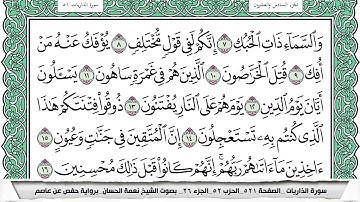 الجزء السادس والعشرون
سورة الذاريات ٥١
وَالسَّمَاءِ ذَاتِ الْحُبُكِ ٧ إِنَّكُمْ لَفِي قَوْلٍ مُّخْتَلِفٍ ٨ يُؤْفَكُ عَنْهُ مَنْ
أُفِكَ ٩ قُتِلَ الْخَرَّاصُونَ ١٠ الَّذِينَ هُمْ فِي غَمْرَةٍ سَاهُونَ ١١ يَسْـَٔلُونَ
أَيَّانَ يَوْمُ الدِّينِ ١٢ يَوْمَ هُمْ عَلَى النَّارِ يُفْتَنُونَ ١٣ ذُوقُوا فِتْنَتَكُمْ هَٰذَا
الَّذِي كُنتُم بِهِ تَسْتَعْجِلُونَ ١٤ إِنَّ الْمُتَّقِينَ فِي جَنَّاتٍ وَعُيُونٍ ١٥
ءَاخِذِينَ مَا ءَاتَاهُمْ رَبُّهُمْ إِنَّهُمْ كَانُوا قَبْلَ ذَٰلِكَ مُحْسِنِينَ ١٦
سورة الذاريات _الصفحة ٥٢١_ الحزب ٥٢_ الجزء ٢٦_ بصوت الشيخ نعمة الحسان_ برواية حفص عن عاصم